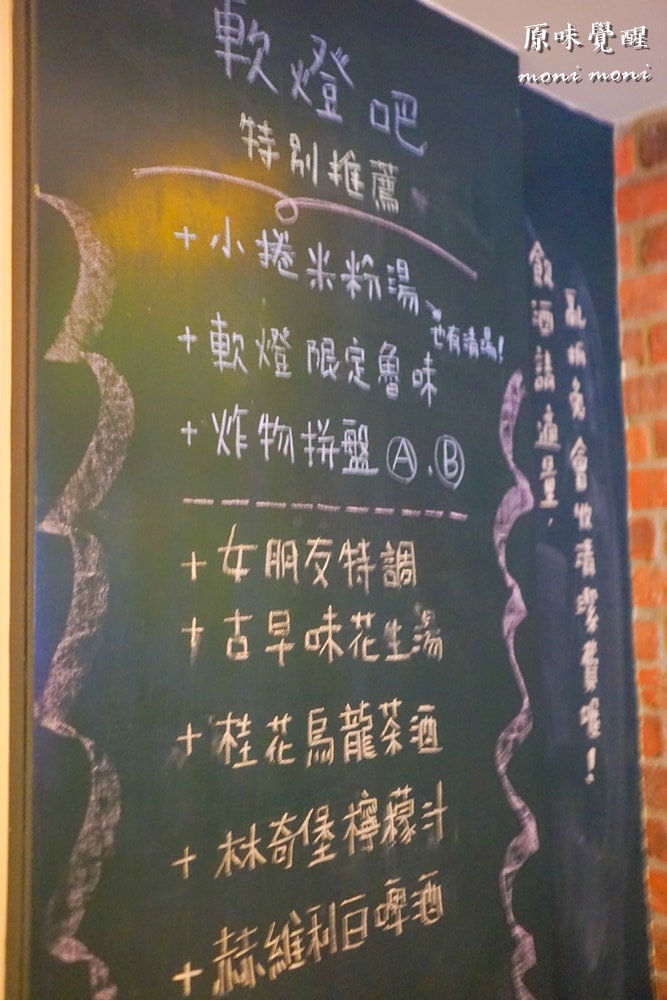 原味覺醒
moni moni
軟燈吧
特別推薦
+小捲米粉湯
也有清湯!
+軟燈限定魯味
+炸物拼盤Ⓐ、Ⓑ
+女朋友特調
+古早味花生湯
+桂花烏龍茶酒
+林奇堡檸檬汁
+赫維利白啤酒
飲酒請適量,
亂抓兔會收清潔費喔!